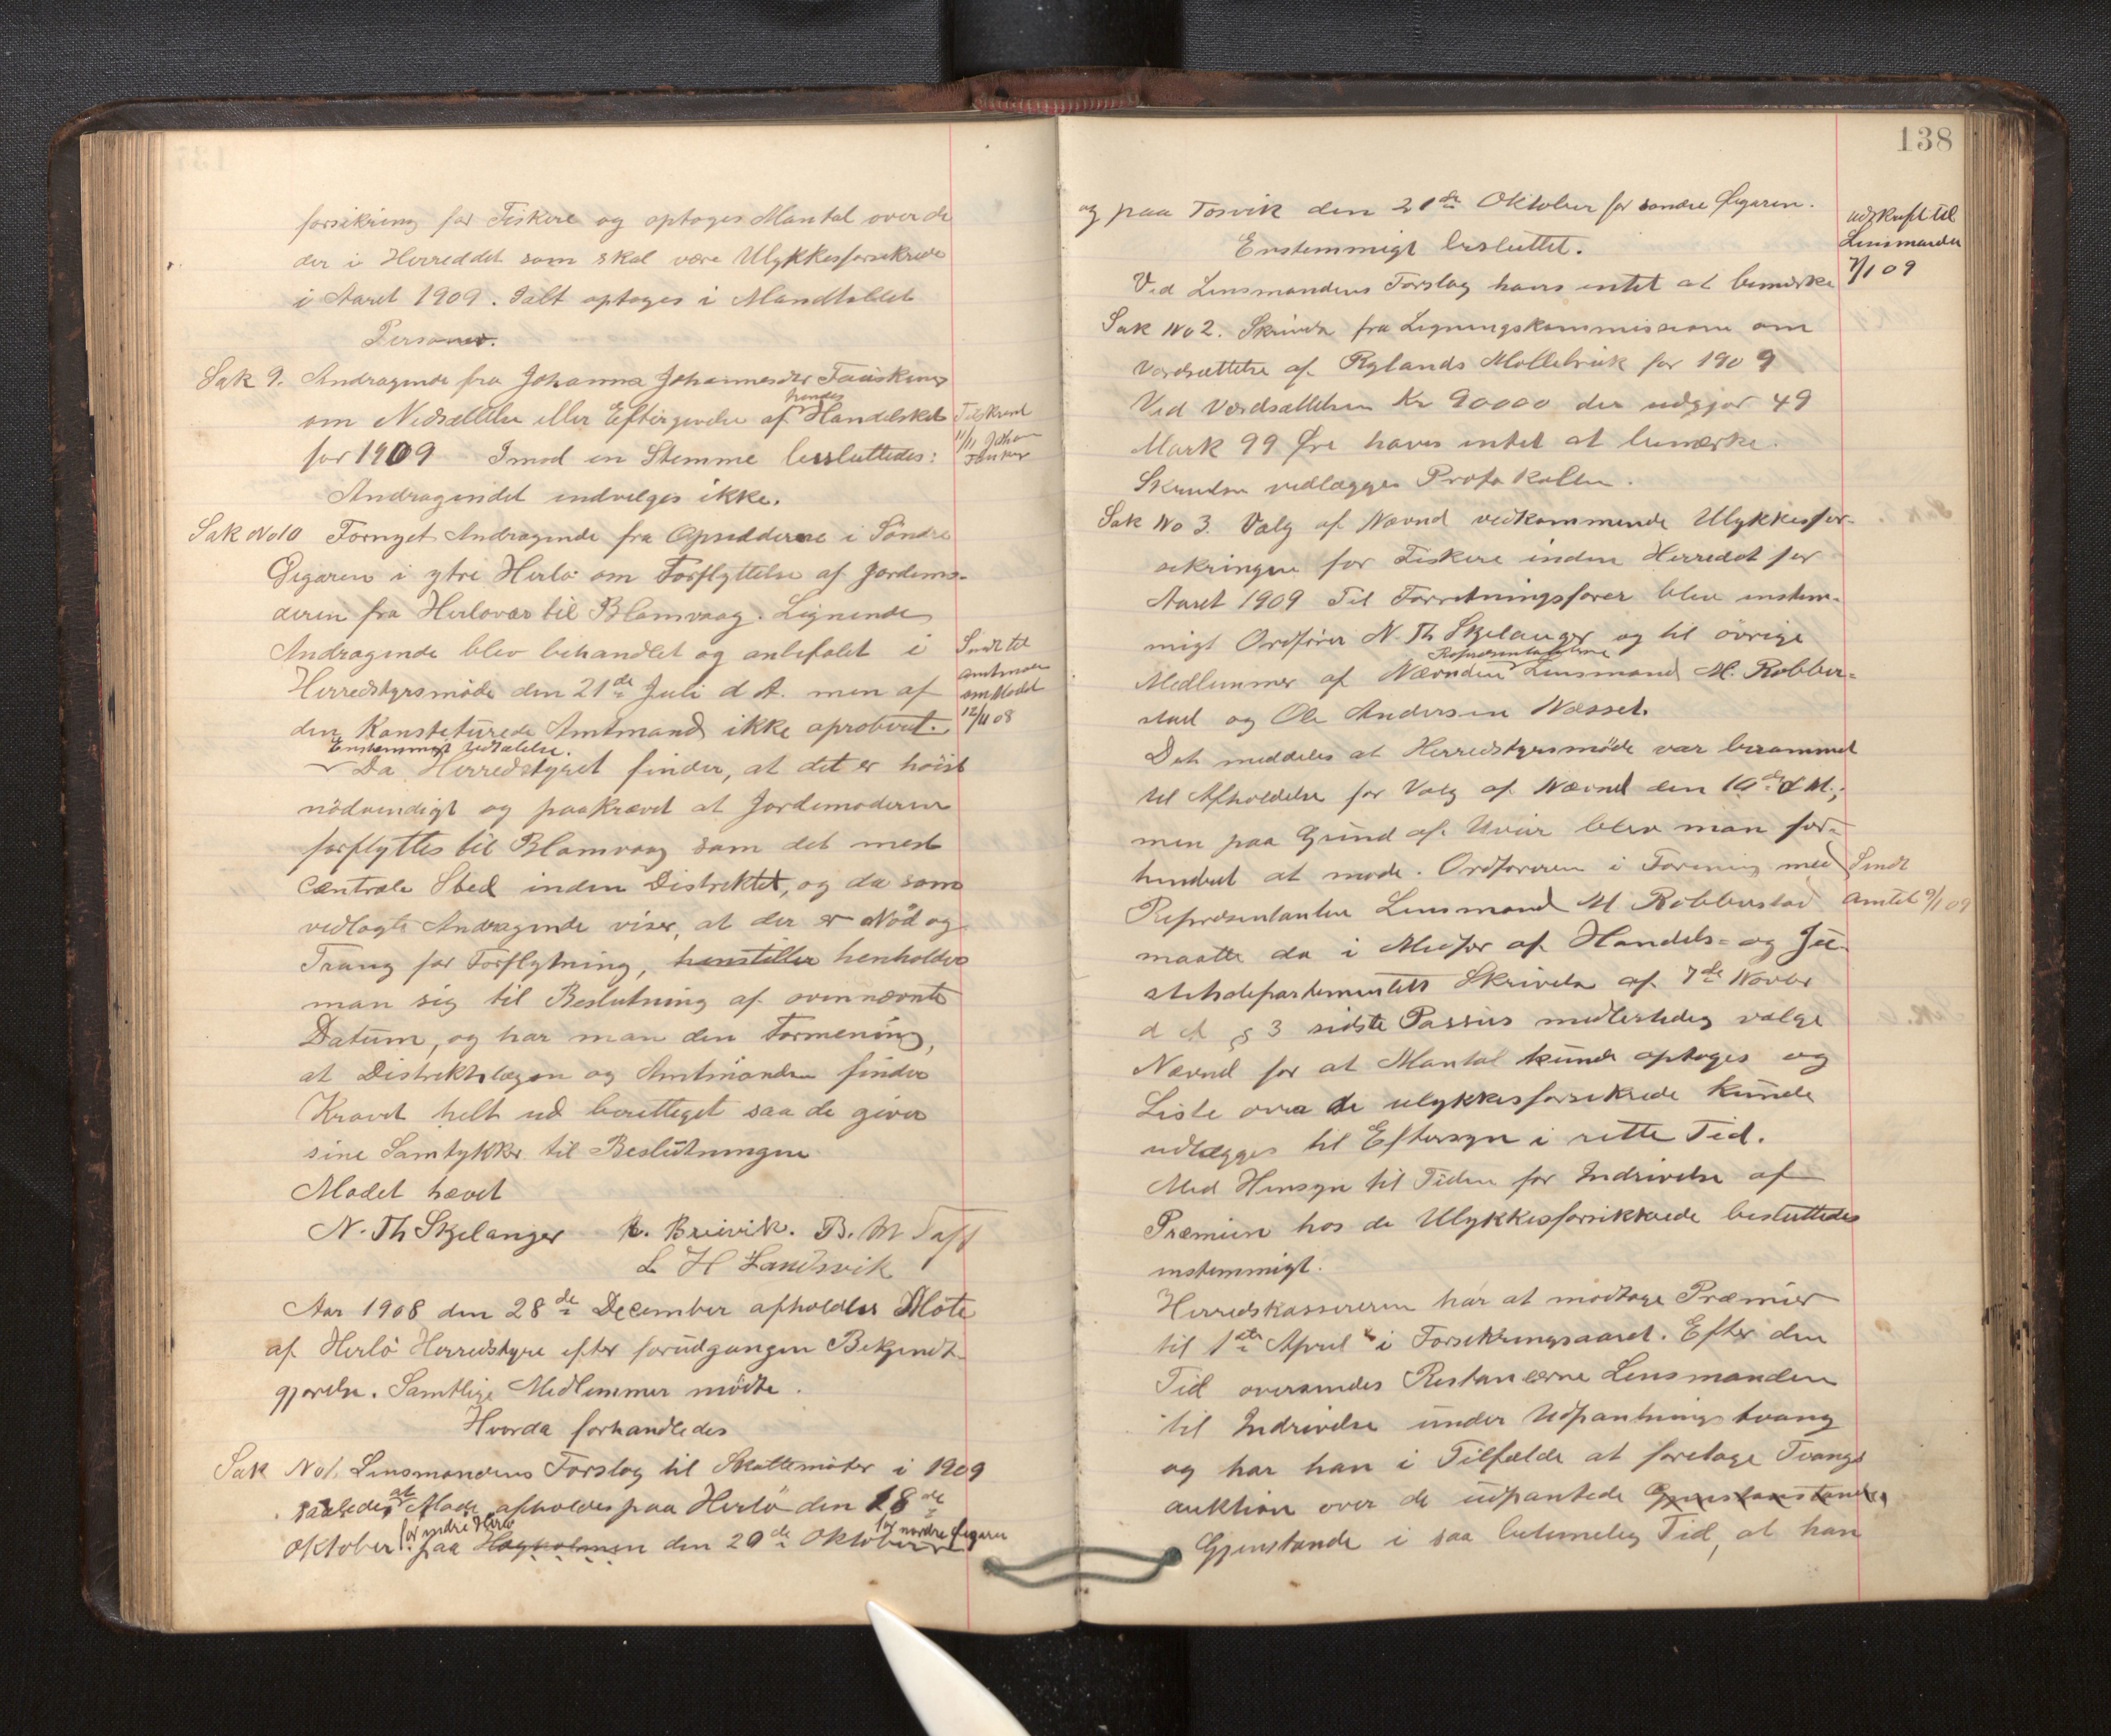 forsikring for Fiskere og optoges Mantal over de
der i Herreddet som skal være Ulykkesforsikrede
i Aaret 1909. Ialt optoges i Mandtallet
Personer.
Sak 9. Andragende fra Johanna Johannesdtr Tauskens
om Nedsættelse eller Eftergivelse af hendes Handelskat
for 1909 Imod en Stemme besluttedes:
Andragendet indvelges ikke.
Tilskrevet
11/11 Johan
Sak No 10 Fornyet Andragende fra Opsidderne i Söndre
Øygaren i ytre Herlö om Forflyttelse af Jordemo-
deren fra Herlövær til Blomvaag. Lignende
Andragende blev behandlet og anbefalet i
Herredstyrsmöde den 21de Juli d A. men af
den Konstiturede Amtmand ikke aproberet.
Sendt til
Amtmanden
12/11 08
Enstemmigt Udtalelse.
Da Herredstyret finder, at det er höist
nödvendigt og paakrævet at Jordemoderen
forflyttes til Blomvaag som det mest
Centrale Sted inden Distriktet, og da som
vedlagte Andragende viser, at der er Nöd og
Trang for Forflytning, henstiller henholder
man sig til Beslutning af ovennævnte
Datum, og har man den Formening,
at Distriktslægen og Amtmanden finder
Kravet helt ud berettiget saa de giver
sine Samtykker til Beslutningen
Mödet hævet
N. Th Skjelanger R. Breivik. B. M Toft
L H Landsvik
Aar 1908 den 28de December afholdtes Möte
af Herlö Herredstyre efter forudgangen Bekjendt-
gjørelse. Samtlige Medlemmer mödte.
Hvorda forhandledes
Sak No 1. Lensmandens Forslag til Skattemöter i 1909
saaledes at Möde afholdes paa Herlö den 18de
Oktober for indre Herlö paa Hagholmen den 20de Oktober for nordre Øigaren
138
og paa Tosvik den 21de Oktober for søndre Øigaren.
Enstemmigt besluttet.
Udskrift til
Lensmanden
7/1 09
Ved Lensmandens Forslag haves intet at bemærke
Sak No 2. Skrivelse fra Ligningskommissionen om
Værdsættelse af Rylands Møllebruk for 1909
Ved Værdsættelsen Kr 90000 der udgjør 49
Mark 99 Øre haves intet at bemærke.
Skrivelsen vedlægges Protokollen.
Sak No 3. Valg af Nævnd vedkommende Ulykkesfor-
sekringen for Fiskere inden Herredet for
Aaret 1909 Til Forretningsfører blev enstem-
migt Ordfører N. Th Skjelanger og til övrige
Medlemmer af Nævnden Repræsentanterne Lensmand M. Robber-
stad og Ole Andersen Næsset.
Det meddeles at Herredstyrsmöde var berammet
til Afholdelse for Valg af Nævnd den 16de d M.;
men paa Grund af Uveir blev man for-
hendret at møde. Ordføreren i Forening med
Repræsentanten Lensmand M Robberstad
Sendt
Amtet 9/1 09
maatte da i Medfør af Handels- og Ju-
stitsdepartementets Skrivelse af 7de Novbr
d A § 3 sidste Passus medlertidig valge
Nævnd for at Mantal kunde optoges og
Liste over de ulykkesforsekrede kunde
udlægges til Eftersyn i rette Tid.
Med Hensyn til Tiden for Indrivelse af
Præmien hos de Ulykkesforsikkrede besluttedes
enstemmigt.
Herredskassereren har at modtage Præmier
til 1ste April i Forsekringsaaret. Efter den
Tid oversendes Restancerne Lensmanden
til Indrivelse under Udpantningstvang
og har han i Tilfælde at foretage Tvangs
auktion over de udpantede Gjenstanstande
Gjenstande i saa betimelig Tid, at han